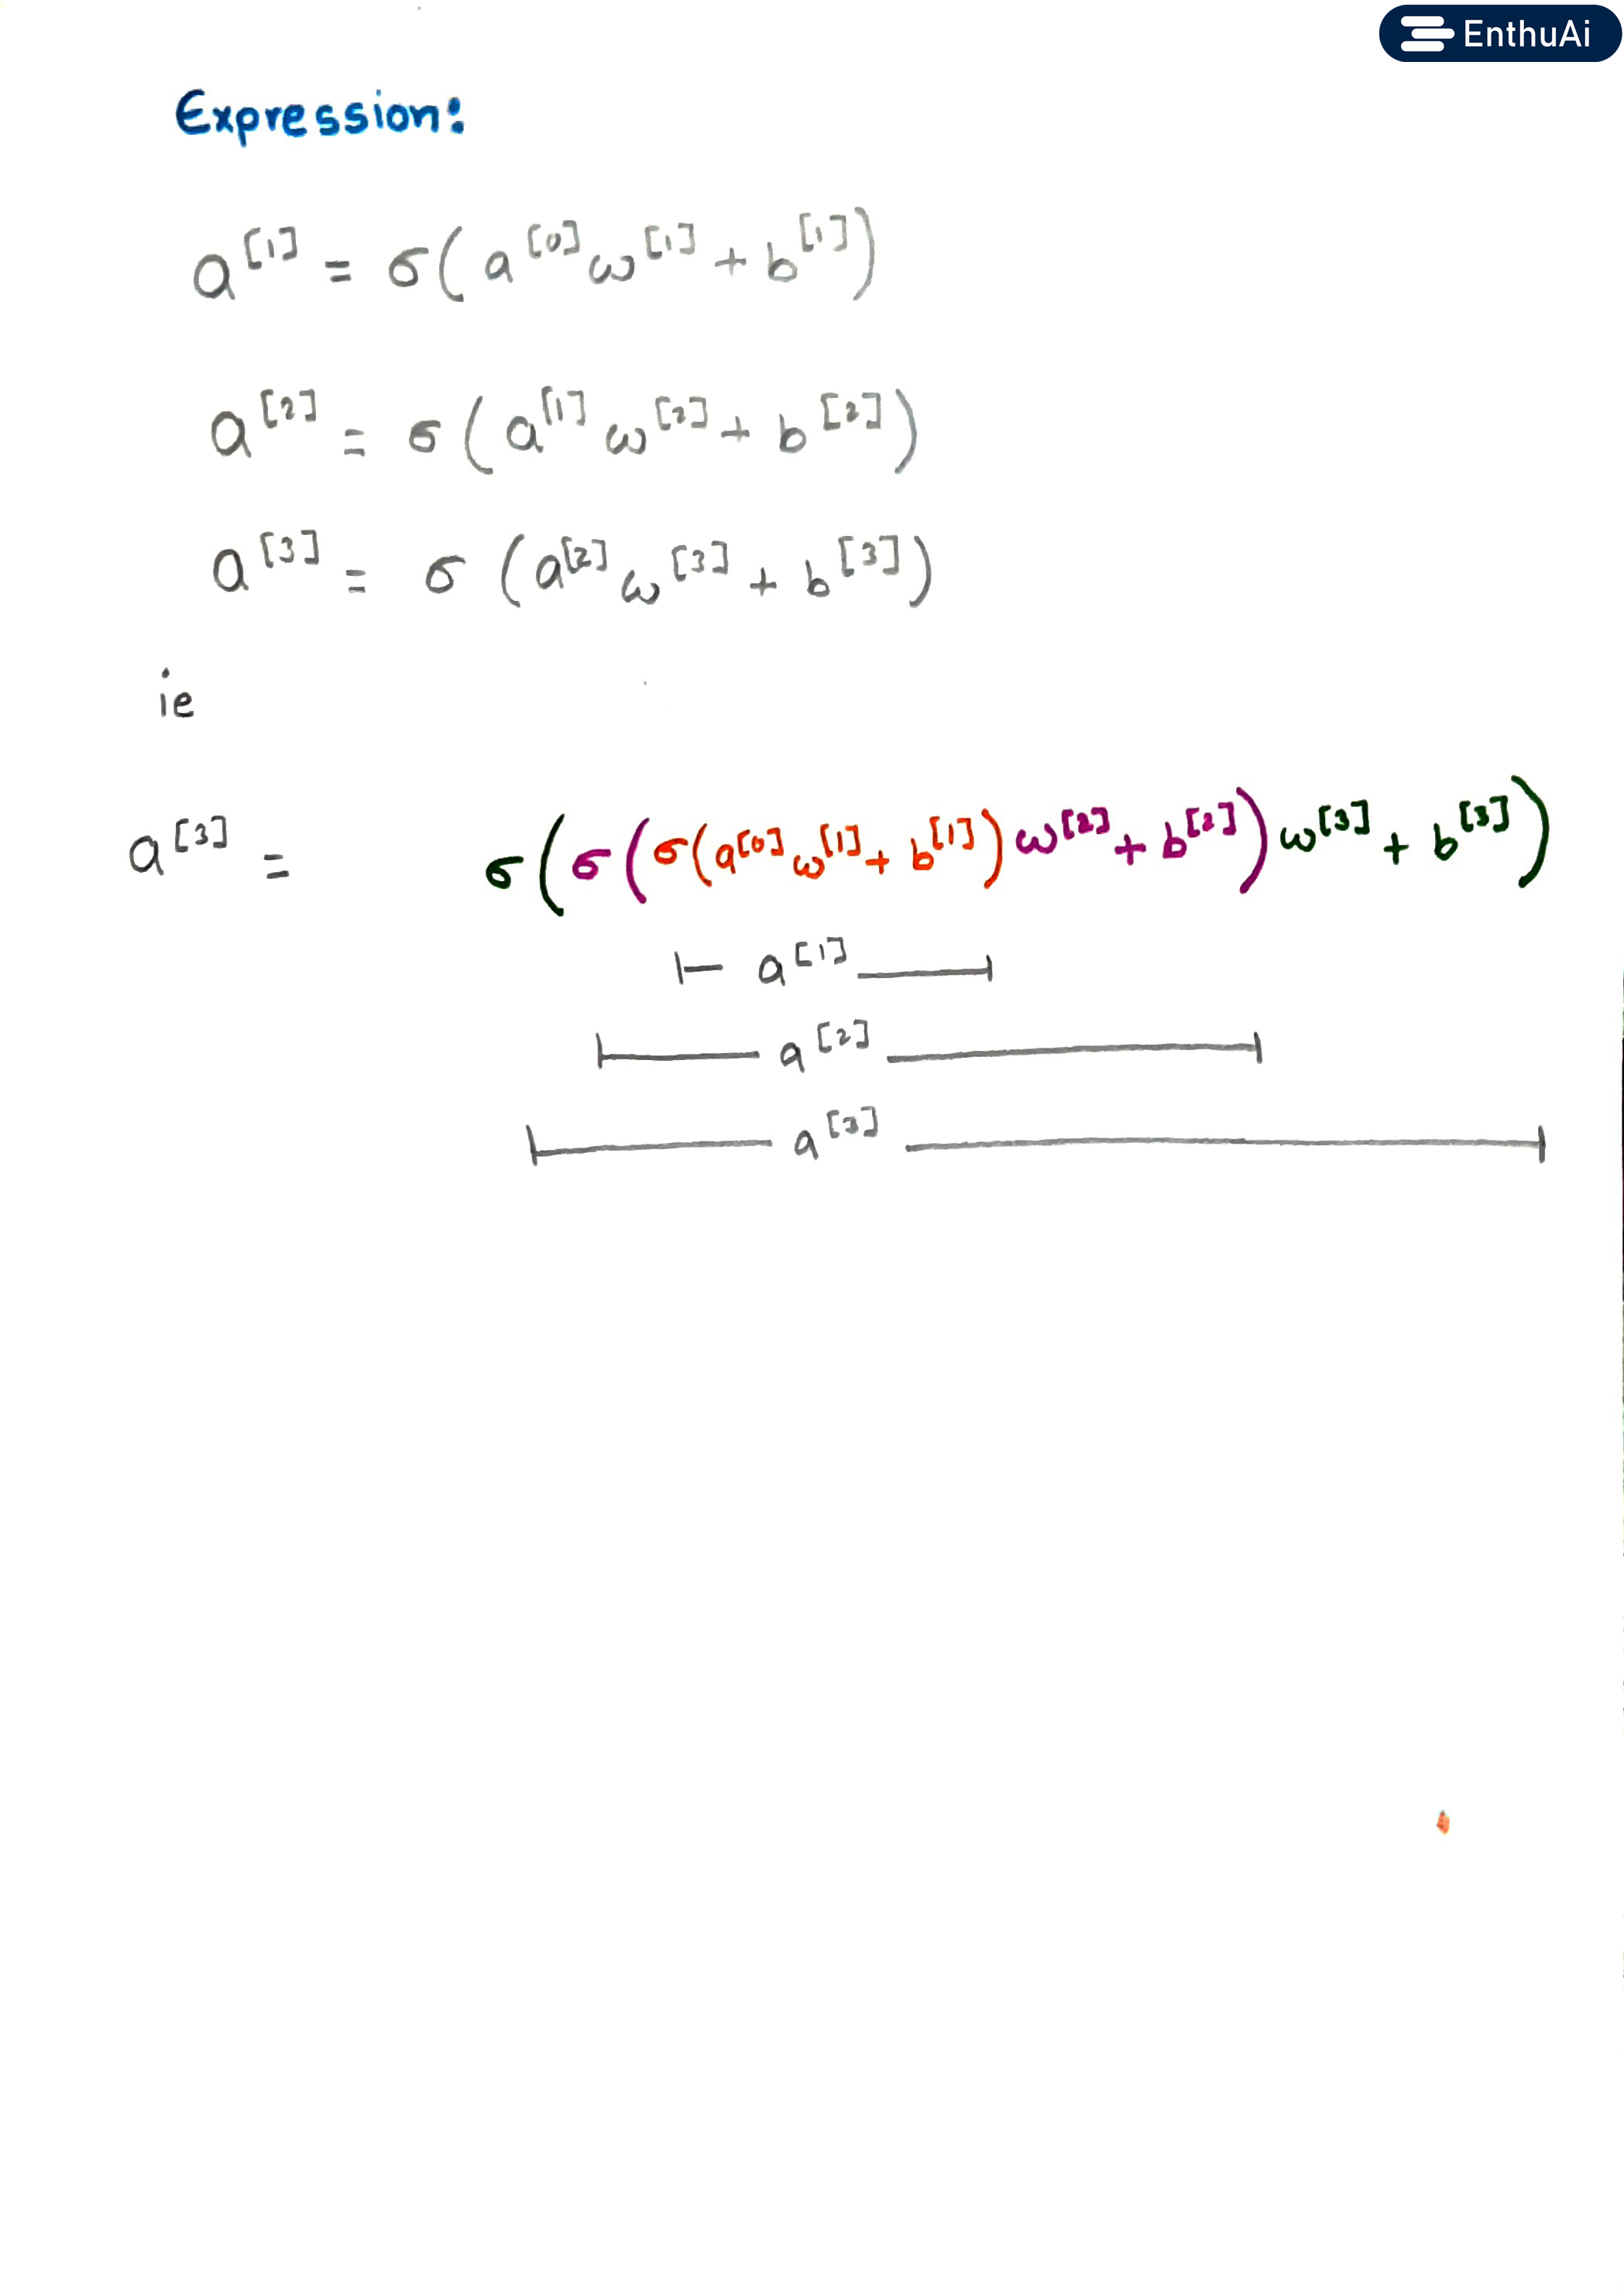 EnthuAi
Expression:
a^[1] = σ(a^[0] ω^[1] + b^[1])
a^[2] = σ(a^[1] ω^[2] + b^[2])
a^[3] = σ(a^[2] ω^[3] + b^[3])
ie
a^[3] = σ(σ(σ(a^[0] ω^[1] + b^[1]) ω^[2] + b^[2]) ω^[3] + b^[3])
a^[1]
a^[2]
a^[3]